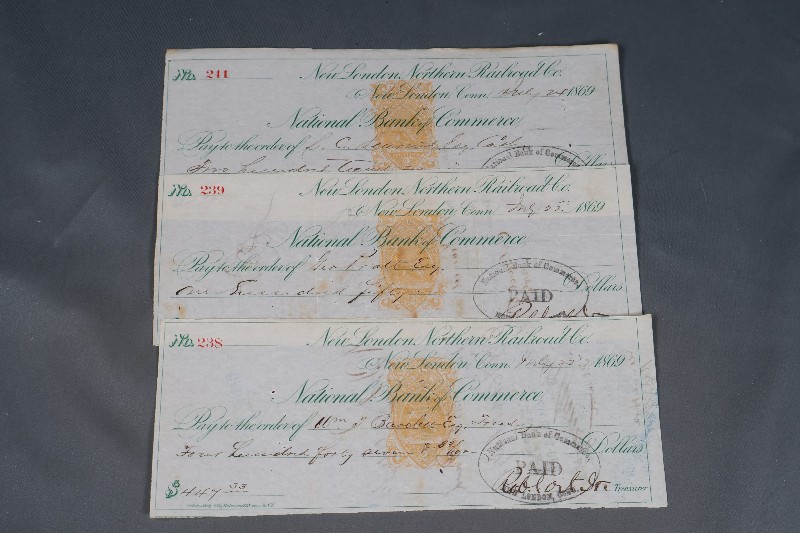 No. 241 New London Northern Railroad Co.
New London Conn. July 24 1869
National Bank of Commerce
Pay to the order of
National Bank of Commerce
hundred
No. 239 New London Northern Railroad Co.
New London Conn July 23 1869
National Bank of Commerce
Pay to the order of Geo Pratt Esq
National Bank of Commerce
One Hundred fifty Dollars
PAID
No. 238 New London Northern Railroad Co.
New London Conn. July 1869
National Bank of Commerce
Pay to the order of Wm Esq. Treas
National Bank of Commerce
Four hundred forty seven & 33/100 Dollars
PAID
NEW LONDON, CONN.
$447 33 Treasurer